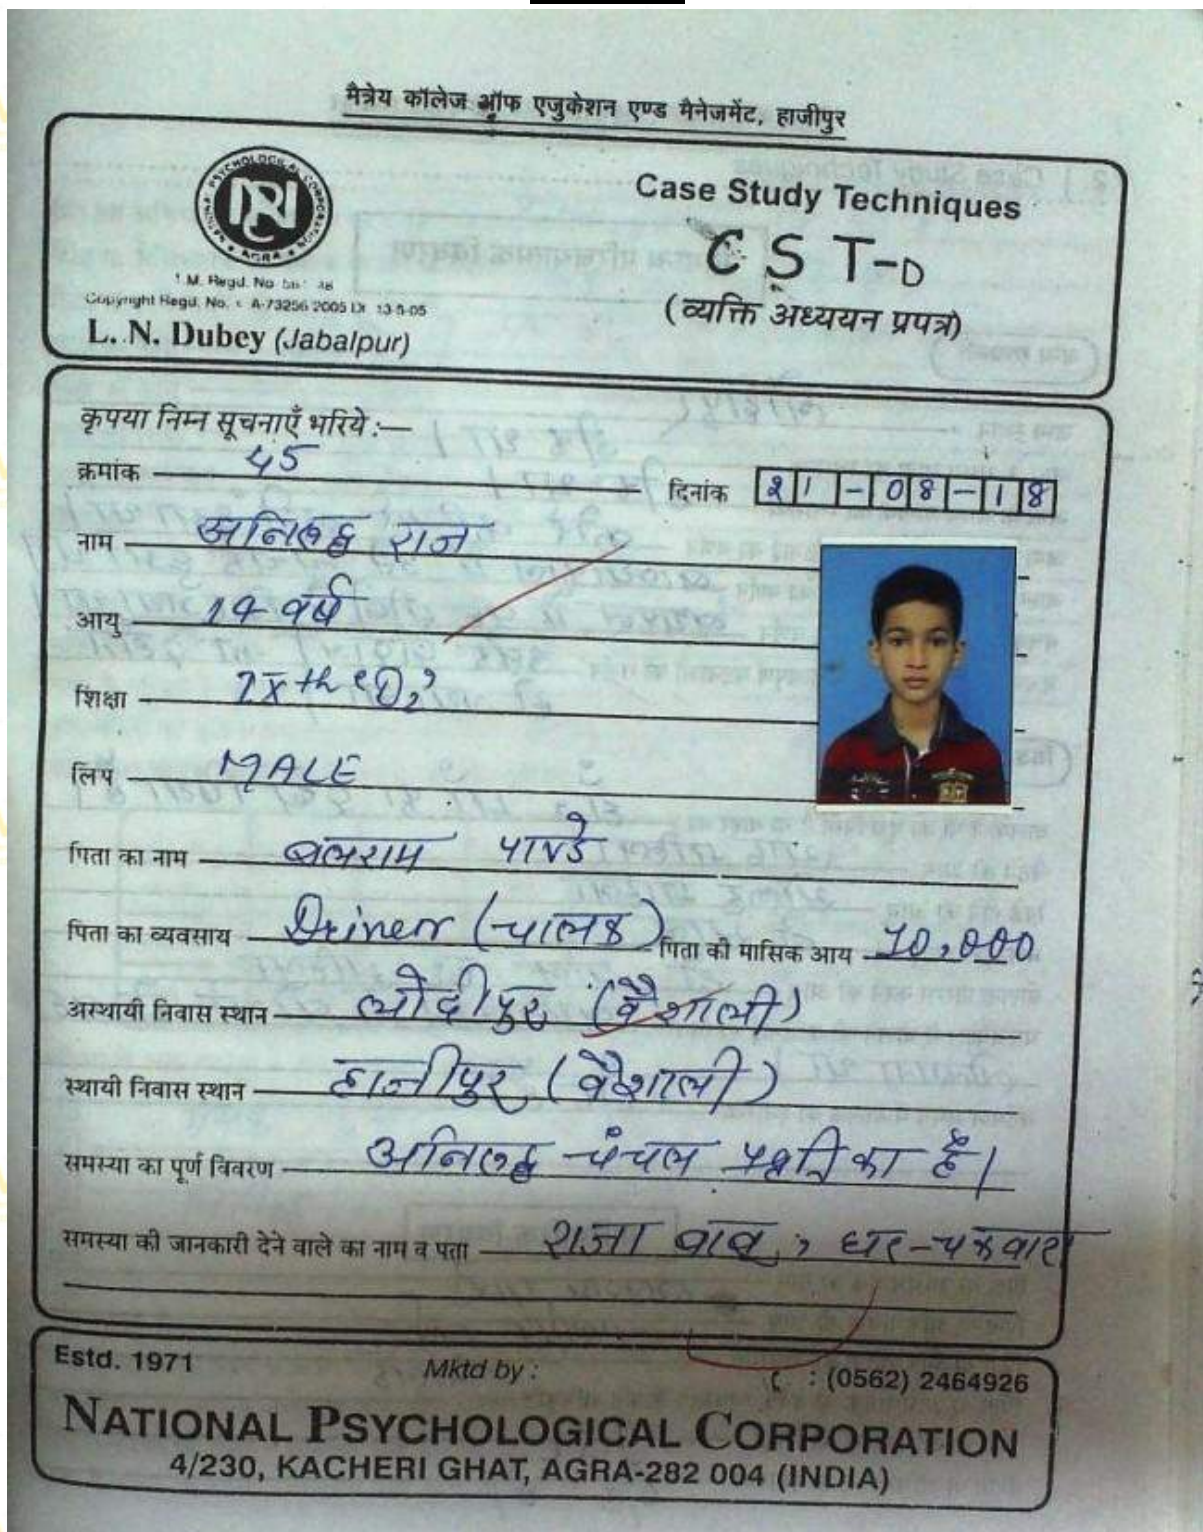 मैत्रेय कॉलेज ऑफ एजुकेशन एण्ड मैनेजमेंट, हाजीपुर
NATIONAL PSYCHOLOGICAL CORPORATION AGRA
Case Study Techniques
CST-D
(व्यक्ति अध्ययन प्रपत्र)
T.M. Regd. No.
Copyright Regd. No. A-73256 2005 Dt. 13-5-05
L. N. Dubey (Jabalpur)
कृपया निम्न सूचनाएँ भरिये :—
क्रमांक 45
दिनांक 21-08-18
नाम अनिरुद्ध राज
आयु 14 वर्ष
शिक्षा IXth 'D'
लिंग MALE
पिता का नाम बलराम पाण्डे
पिता का व्यवसाय Driver (चालक) पिता की मासिक आय 10,000
अस्थायी निवास स्थान लोदीपुर (वैशाली)
स्थायी निवास स्थान हाजीपुर (वैशाली)
समस्या का पूर्ण विवरण अनिरुद्ध चंचल प्रवृत्ति का है।
समस्या की जानकारी देने वाले का नाम व पता राजा बाबू, घर-चकवारा
Estd. 1971 Mktd by : : (0562) 2464926
NATIONAL PSYCHOLOGICAL CORPORATION
4/230, KACHERI GHAT, AGRA-282 004 (INDIA)